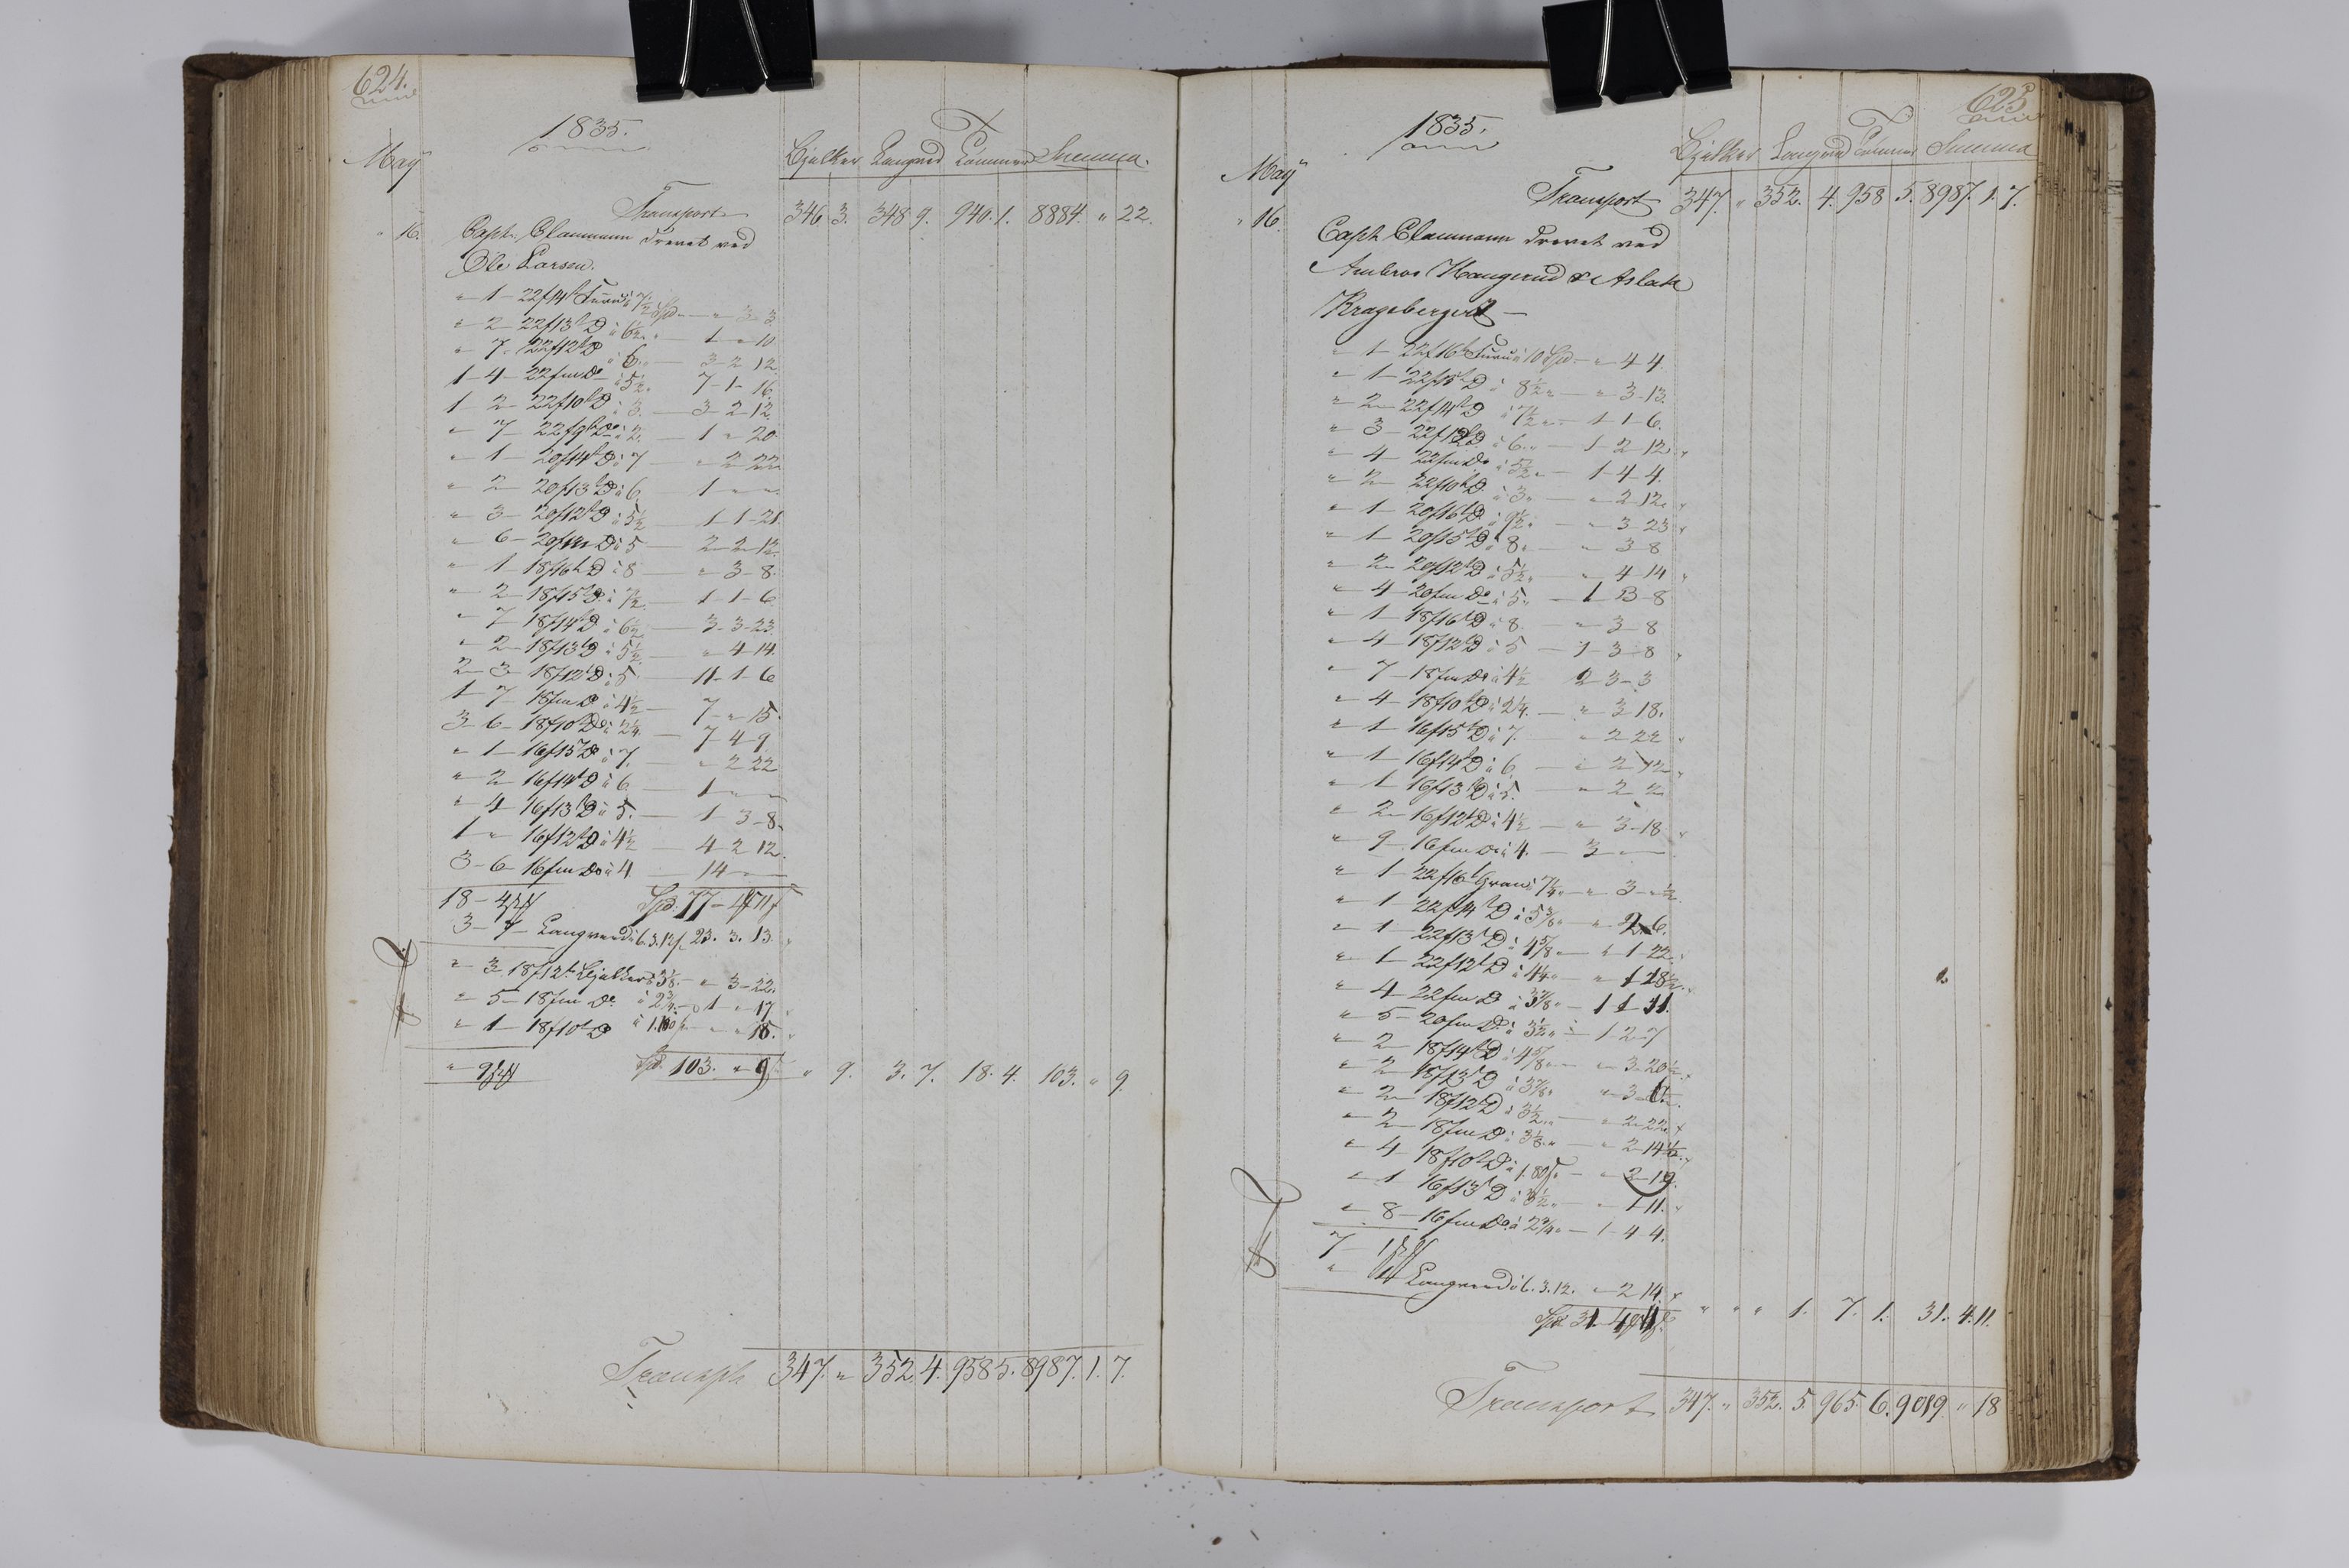 624.
1835.
May
Bjelker Langved Tömmer Summa.
Transport 346. 3. 348 9. 940. 1. 8884. " 22.
" 16. Capt. Claumann drevet ved
Ole Larsen.
" 1 - 22f 14t Furu à 7½ Spd - " 3 3
" 2 - 22f 13t Do à 6½ " - 1 " 10
" 7 - 22f 12t Do à 6 " - 3 - 2 12
1 - 4 - 22f m Do à 5½ " 7 - 1 - 16
1 - 2 - 22f 10t Do à 3. - 3 - 2 12
" 7 - 22f 9t Do à 2. - 1 " 20
" 1 - 20f 14t Do à 7 - " 2 22
" 2 - 20f 13t Do à 6 - 1 " "
" 3 - 20f 12t Do à 5½ - 1 - 1 - 21
" 6 - 20f m Do à 5 - 2 - 2 - 12
" 1 - 18f 16t Do à 8 - " 3 - 8.
" 2 - 18f 15t Do à 7½ - 1 - 1 - 6
" 7 - 18f 14t Do à 6½ - 3 - 3 - 23
" 2 - 18f 13t Do à 5½ - " 4 14.
2 - 3 - 18f 12t Do à 5 - 11 - 1 - 6
1 - 7 - 18f m Do à 4½ - 7 - " 15
3 - 6 - 18f 10t Do à 2¼ - 7 4 9
" 1 - 16f 15t Do à 7. - " 2 22
" 2 - 16f 14t Do à 6 - 1 " "
" 4 - 16f 13t Do à 5. - 1 - 3 - 8
1 " - 16f 12t Do à 4½ - 4 - 2 12
3 - 6 - 16f m Do à 4 - 14 " "
18 - 4 Spd. 77 -
3 - 7 Langved à 6. 3. 12 f. 23. 3. 13.
" 3. 18f 12t Bjelker à 3⅛ - " 3 - 22.
" 5 - 18f m Do à 2¾ - 1 " 17
" 1 - 18f 10t Do " 18.
" 9 Spd. 103. " 9 " 9. 3. 7. 18. 4. 103. " 9
Transpt 347. " 352. 4. 958 5. 8987. 1. 7.
625
1835.
May
Bjelker Langved Tömmer Summa
Transport 347. " 352. 4. 958 5. 8987. 1. 7.
" 16. Capt Claumann drevet ved
Ambros Haugerud & Aslak
Krageberget -
" 1 - 22f 16t Furu à 10 Spd - " 4 4
" 1 - 22f 15t Do à 8½ " - " 3 - 13
" 2 - 22f 14t Do à 7½ " - 1 1 6.
" 3 - 22f 12t Do à 6 " - 1 - 2 12
" 4 - 22f m Do à 5½ " - 1 - 4 4
" 2 - 22f 10t Do à 3 " - " 2 12
" 1 - 20f 16t Do à 9½ " - " 3 - 23
" 1 - 20f 15t Do à 8 " - " 3 - 8
" 2 - 20f 12t Do à 5½ " - " 4 14
" 4 - 20f m Do à 5 " - 1 3 - 8
" 1 - 18f 16t Do à 8 - " 3 - 8
" 4 - 18f 12t Do à 5 - 1 - 3 - 8
" 7 - 18f m Do à 4½ 2 3 - 3
" 4 - 18f 10t Do à 2¼ - " 3 18.
" 1 - 16f 15t Do à 7. - " 2 22
" 1 - 16f 14t Do à 6 - " 2 12
" 1 - 16f 13t Do à 5. - " 2 2
" 2 - 16f 12t Do à 4½ - " 3 - 18
" 9 - 16f m Do à 4. - 3 " "
" 1 - 22f 16t Gran à 7¼ " - " 3 - " ½
" 1 22f 14t Do " 2 6.
" 1 22f 13t Do à 4⅝ " - " 1 - 22
" 1 22f 12t Do à 4¼ " - " 1 18½
" 4 - 22f m Do à 3⅞ " - 1 1 - 11.
" 5 - 20f m Do à 3½ " - 1 - 2 - 7
" 2 18f 14t Do à 4⅝ " - " 3 - 20½
" 2 18f 13t Do à 3⅞ " " 3 -
" 2 - 18f 12t Do à 3½ " - " 2 - 22
" 2 - 18f m Do à 3⅛ " - " 2 - 14½
" 4 18f 10t Do - " 2 - 19.
" 1 16f 13t Do à 3½ " - " 1 11.
" 8 - 16f m Do à 2¾ " - 1 - 4 - 4.
7 - 1
" 1 Langved à 6. 3. 12. " 2 14
Spd 31. 4 11 " " " 1. 7. 1. 31. 4. 11.
Transport 347. " 352. 5. 965. 6. 9019 " 18